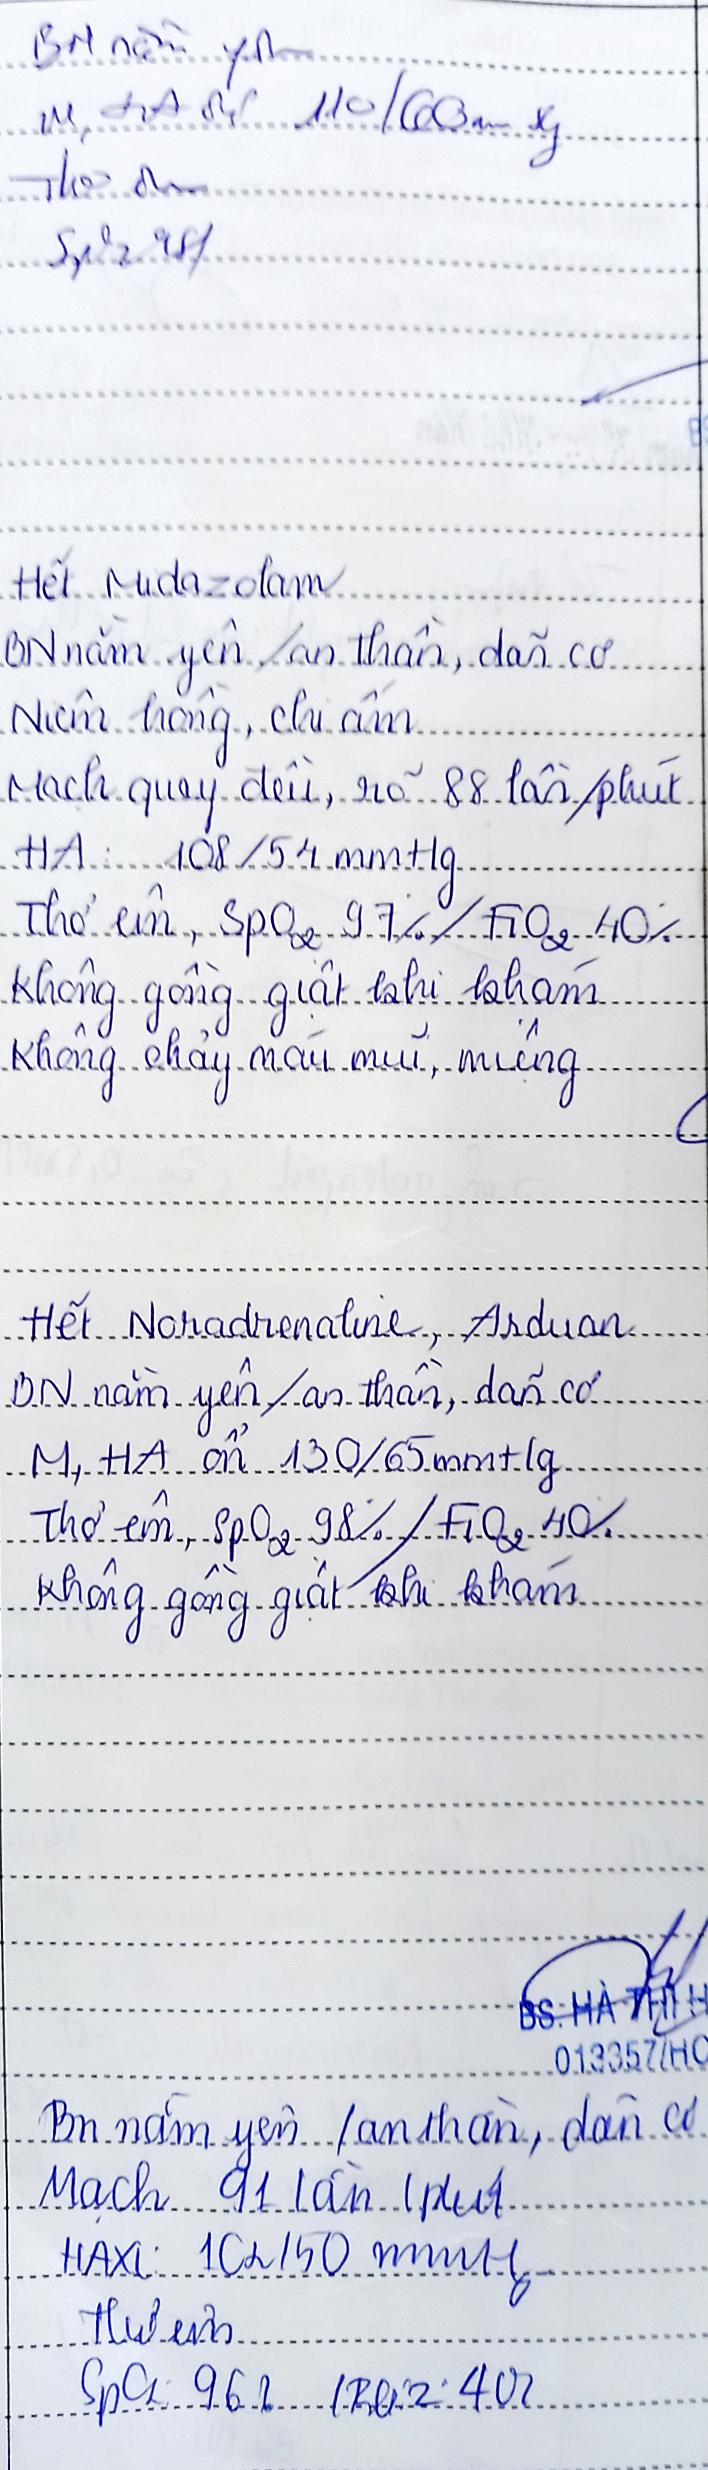 BN nằm yên
M, HA ổn 110/60mmHg
Thở êm
SpO2 98%
Hết Midazolam
BN nằm yên/an thần, dãn cơ
Niêm hồng, chi ấm
Mạch quay đều, rõ 88 lần/phút
HA: 108/54 mmHg
Thở êm, SpO2 97%/FiO2 40%
Không gồng giật khi khám
Không chảy máu mũi, miệng
Hết Noradrenaline, Arduan
BN nằm yên/an thần, dãn cơ
M, HA ổn 130/65mmHg
Thở êm, SpO2 98%/FiO2 40%
Không gồng giật khi khám
BS. HÀ THỊ H
013357/HC
Bn nằm yên /an thần, dãn cơ
Mạch 91 lần/phút
HAXL: 102/50 mmHg
Thở êm
SpO2: 96%